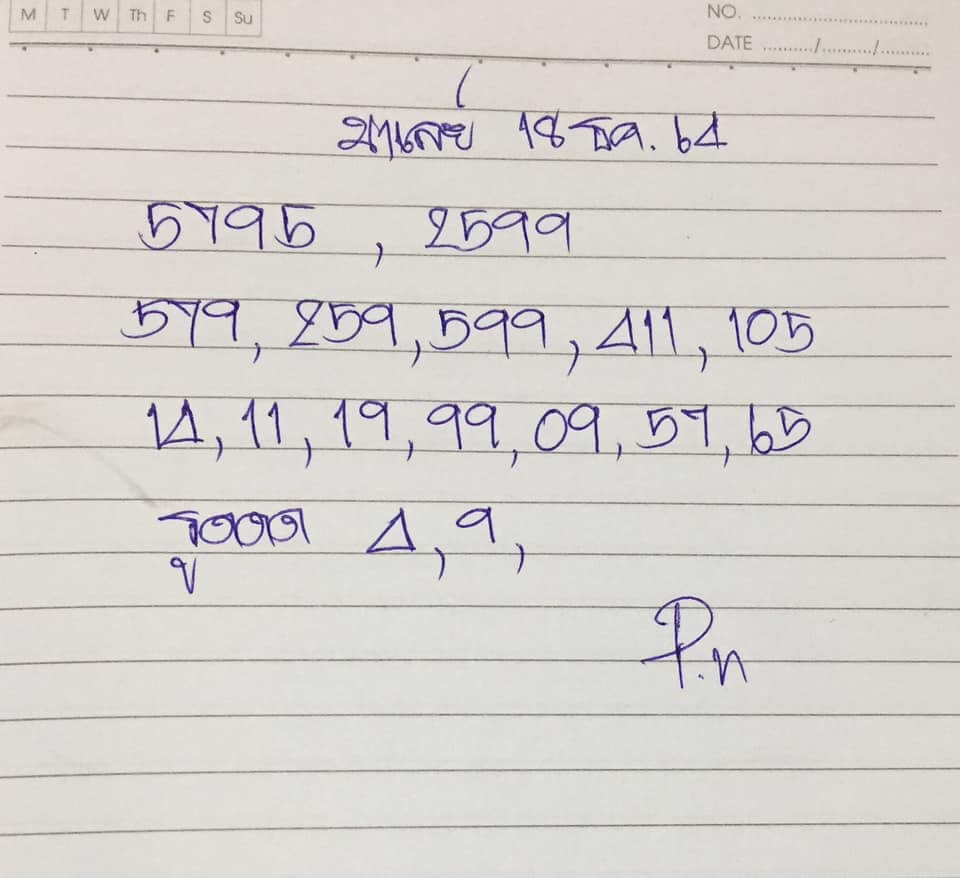 M T W Th F S Su
NO. ....................
DATE ........../........../..........
มาเลย์ 18 ธค. 64
5795 , 2599
579, 259, 599, 411, 105
14, 11, 19, 99, 09, 57, 65
4, 9,
P.n